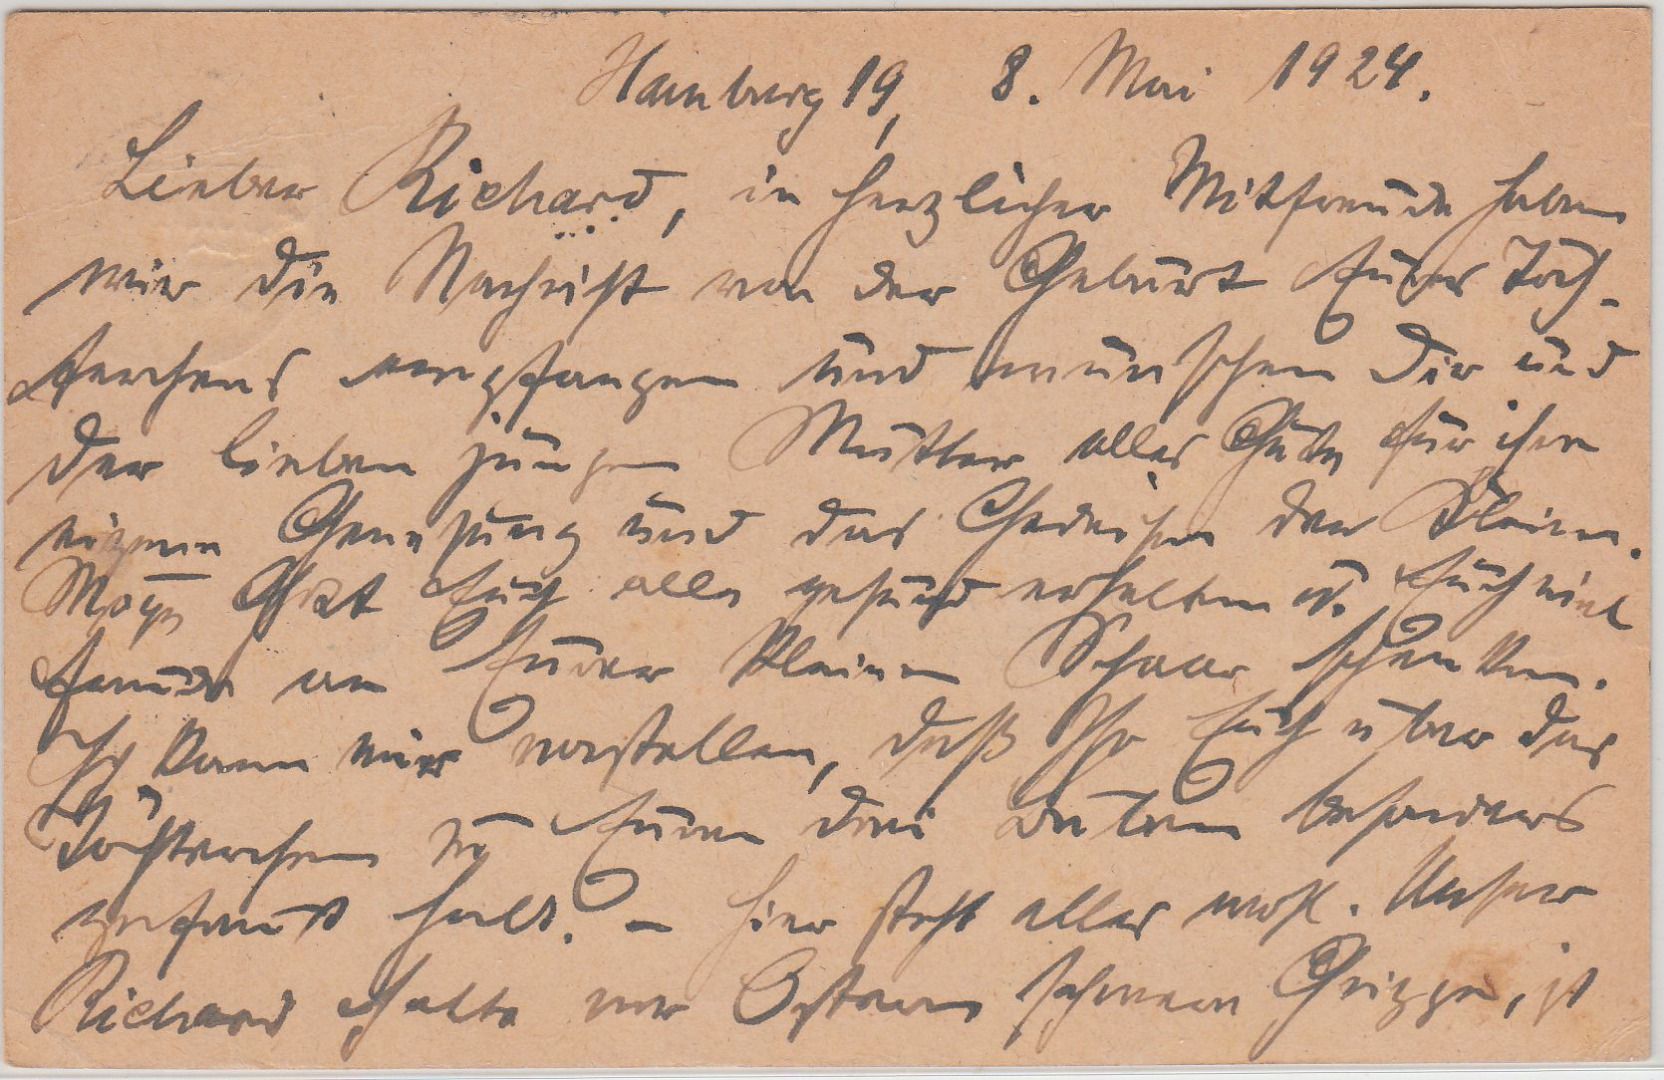 Hamburg 19, 8. Mai 1924.
Lieber Richard, in herzlicher Mitfreude haben
wir die Nachricht von der Geburt Eures Töch-
terchens empfangen und wünschen Dir und
der lieben jungen Mutter alles Gute für ihre
eigene Genesung und das Gedeihen der Kleinen.
Möge Gott Euch alle gesund erhalten u. Euch viel
Freude an Eurer kleinen Schaar schenken.
Ich kann mir vorstellen, daß Ihr Euch über das
Töchterchen zu Euren drei Buben besonders
gefreut habt. – Hier steht alles wohl. Unser
Richard hatte vor Ostern schwere Grippe, ist